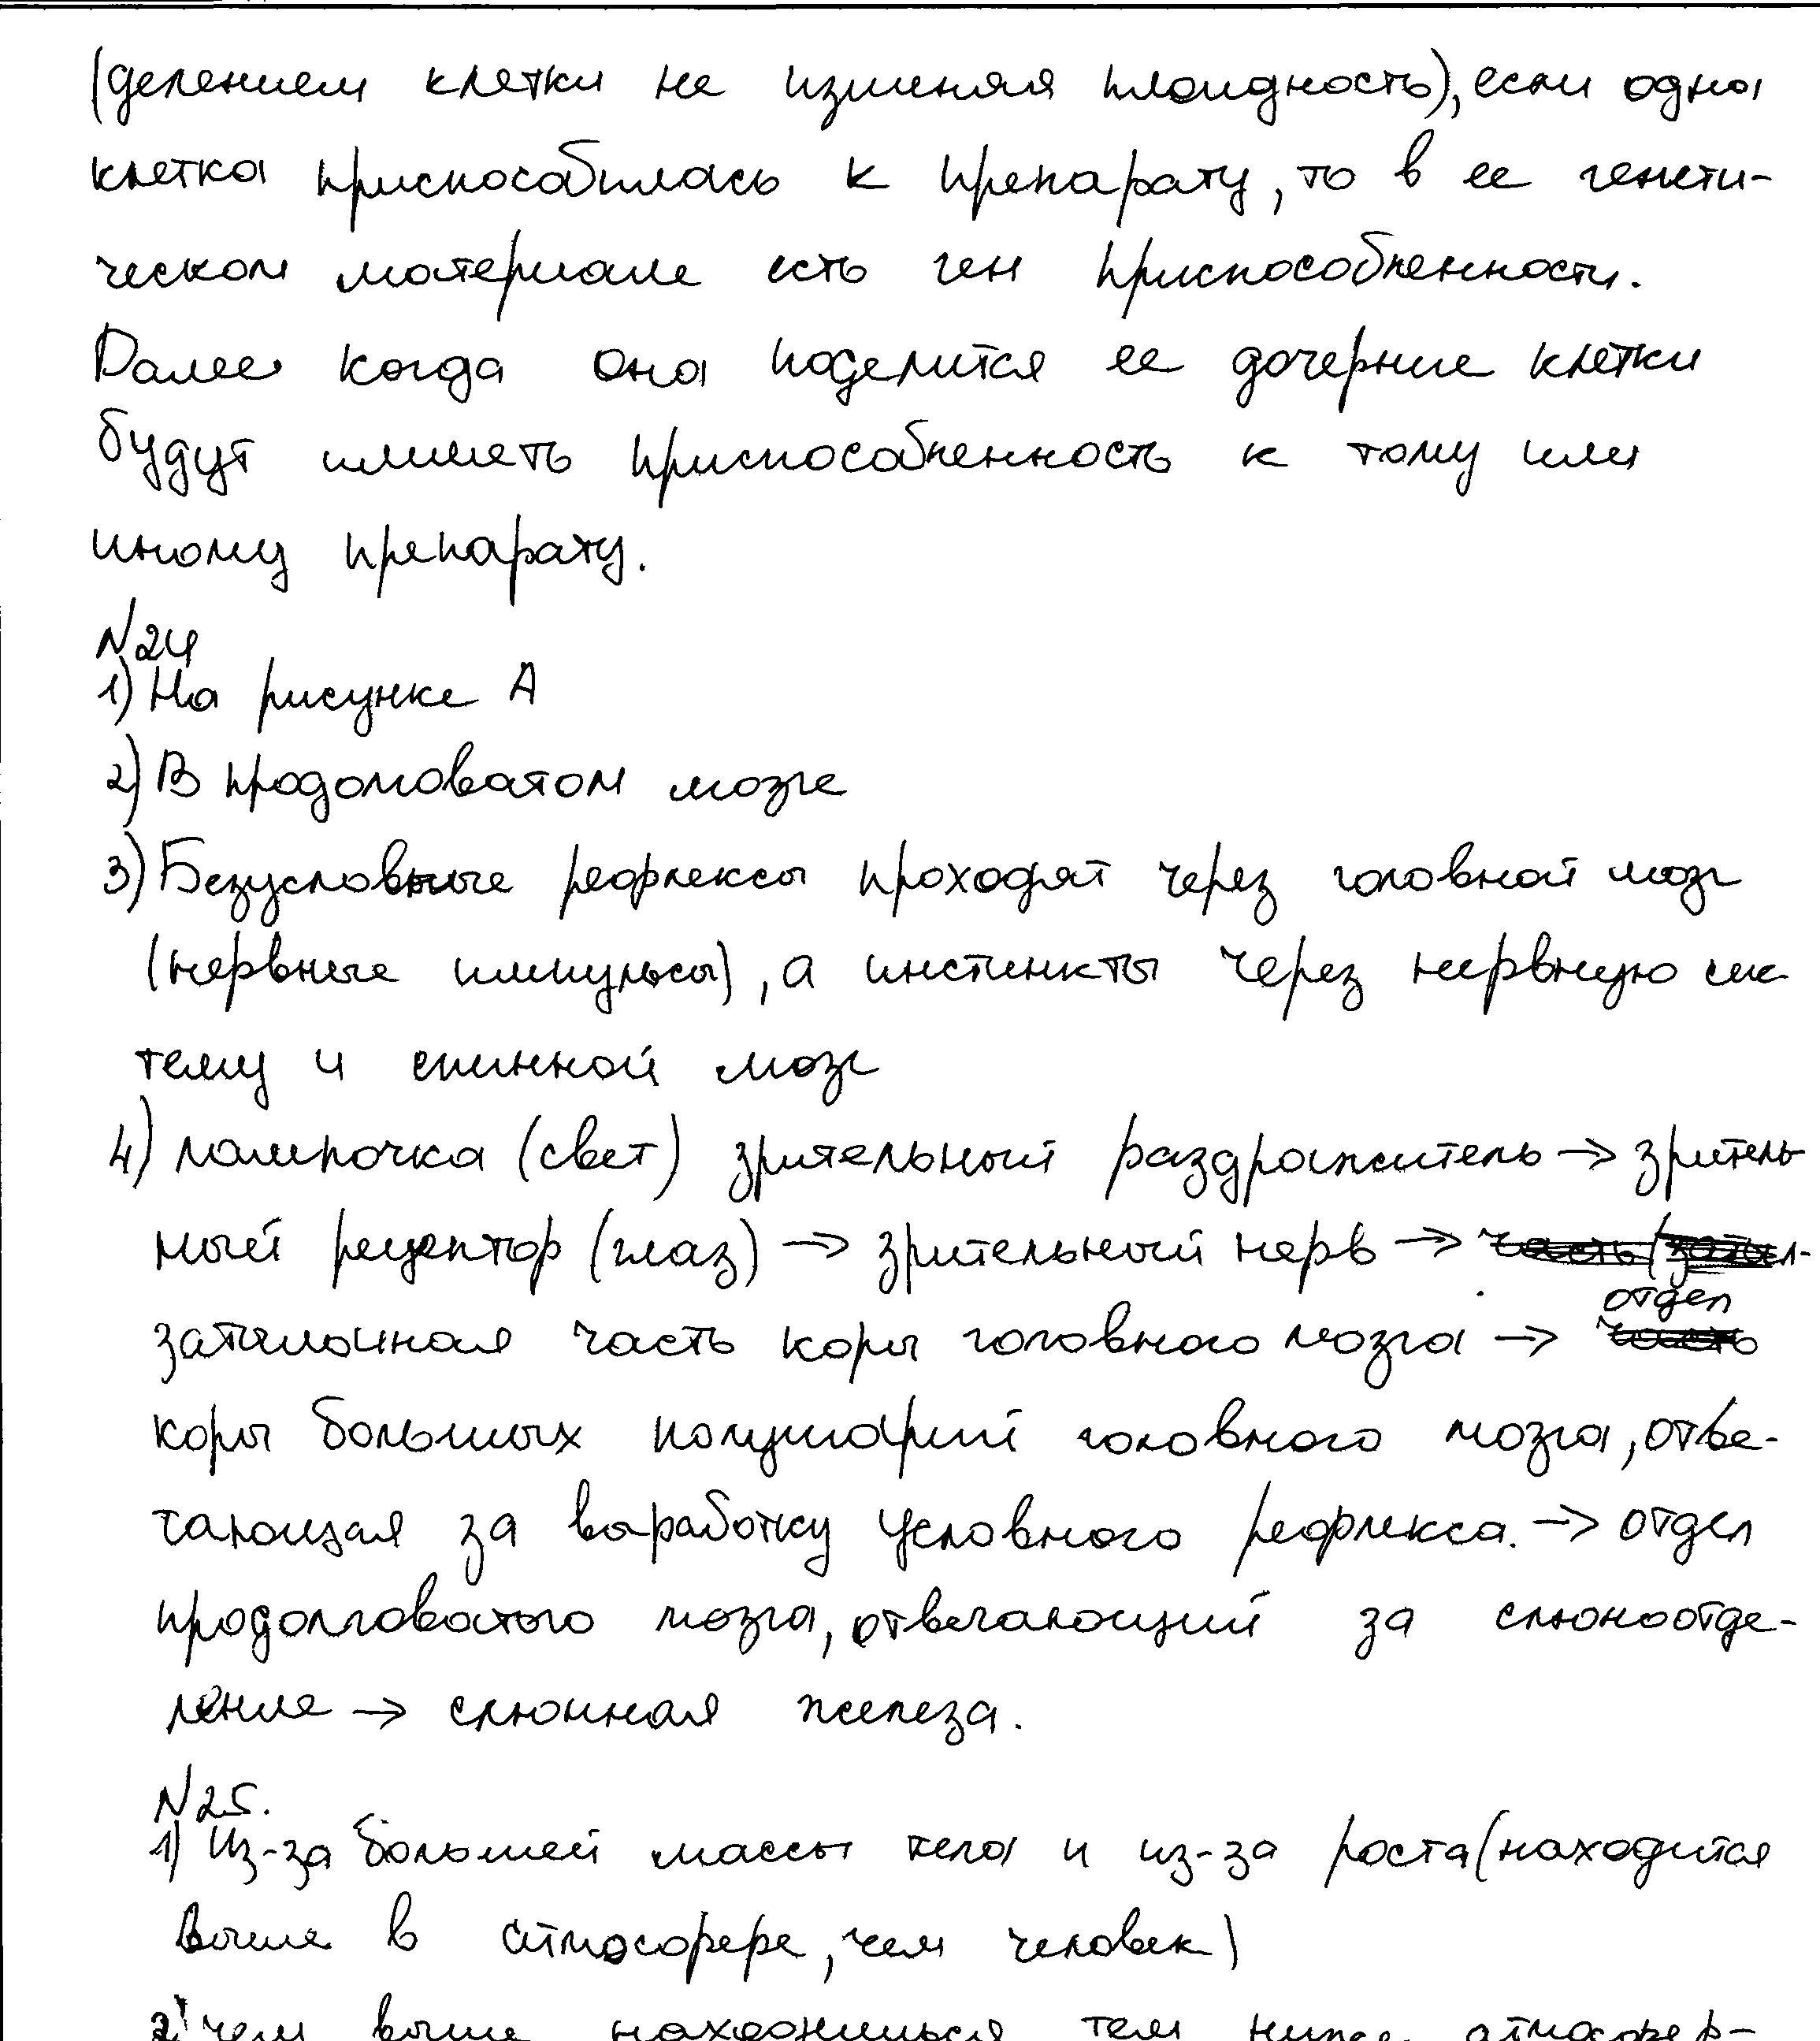 (делением клетки не изменяя плоидность), если одна
клетка приспособилась к препарату, то в ее генети-
ческом материале есть ген приспособленности.
Далее когда она поделится ее дочерние клетки
будут иметь приспособленность к тому или
иному препарату.
N24
1) На рисунке А
2) В продолговатом мозге
3) Безусловные рефлексы проходят через головной мозг
(нервные импульсы), а инстинкты через нервную сис
тему и спинной мозг
4) лампочка (свет) зрительный раздражитель → зритель
ный рецептор (глаз) → зрительный нерв →
затылочная часть коры головного мозга → отдел
коры больших полушарий головного мозга, отве-
чающая за выработку условного рефлекса. → отдел
продолговатого мозга, отвечающий за слюноотде-
ление → слюнная железа.
N25.
1) Из-за большей массы тела и из-за роста (находится
выше в атмосфере, чем человек)
2) чем выше находишься тем ниже атмосфер-